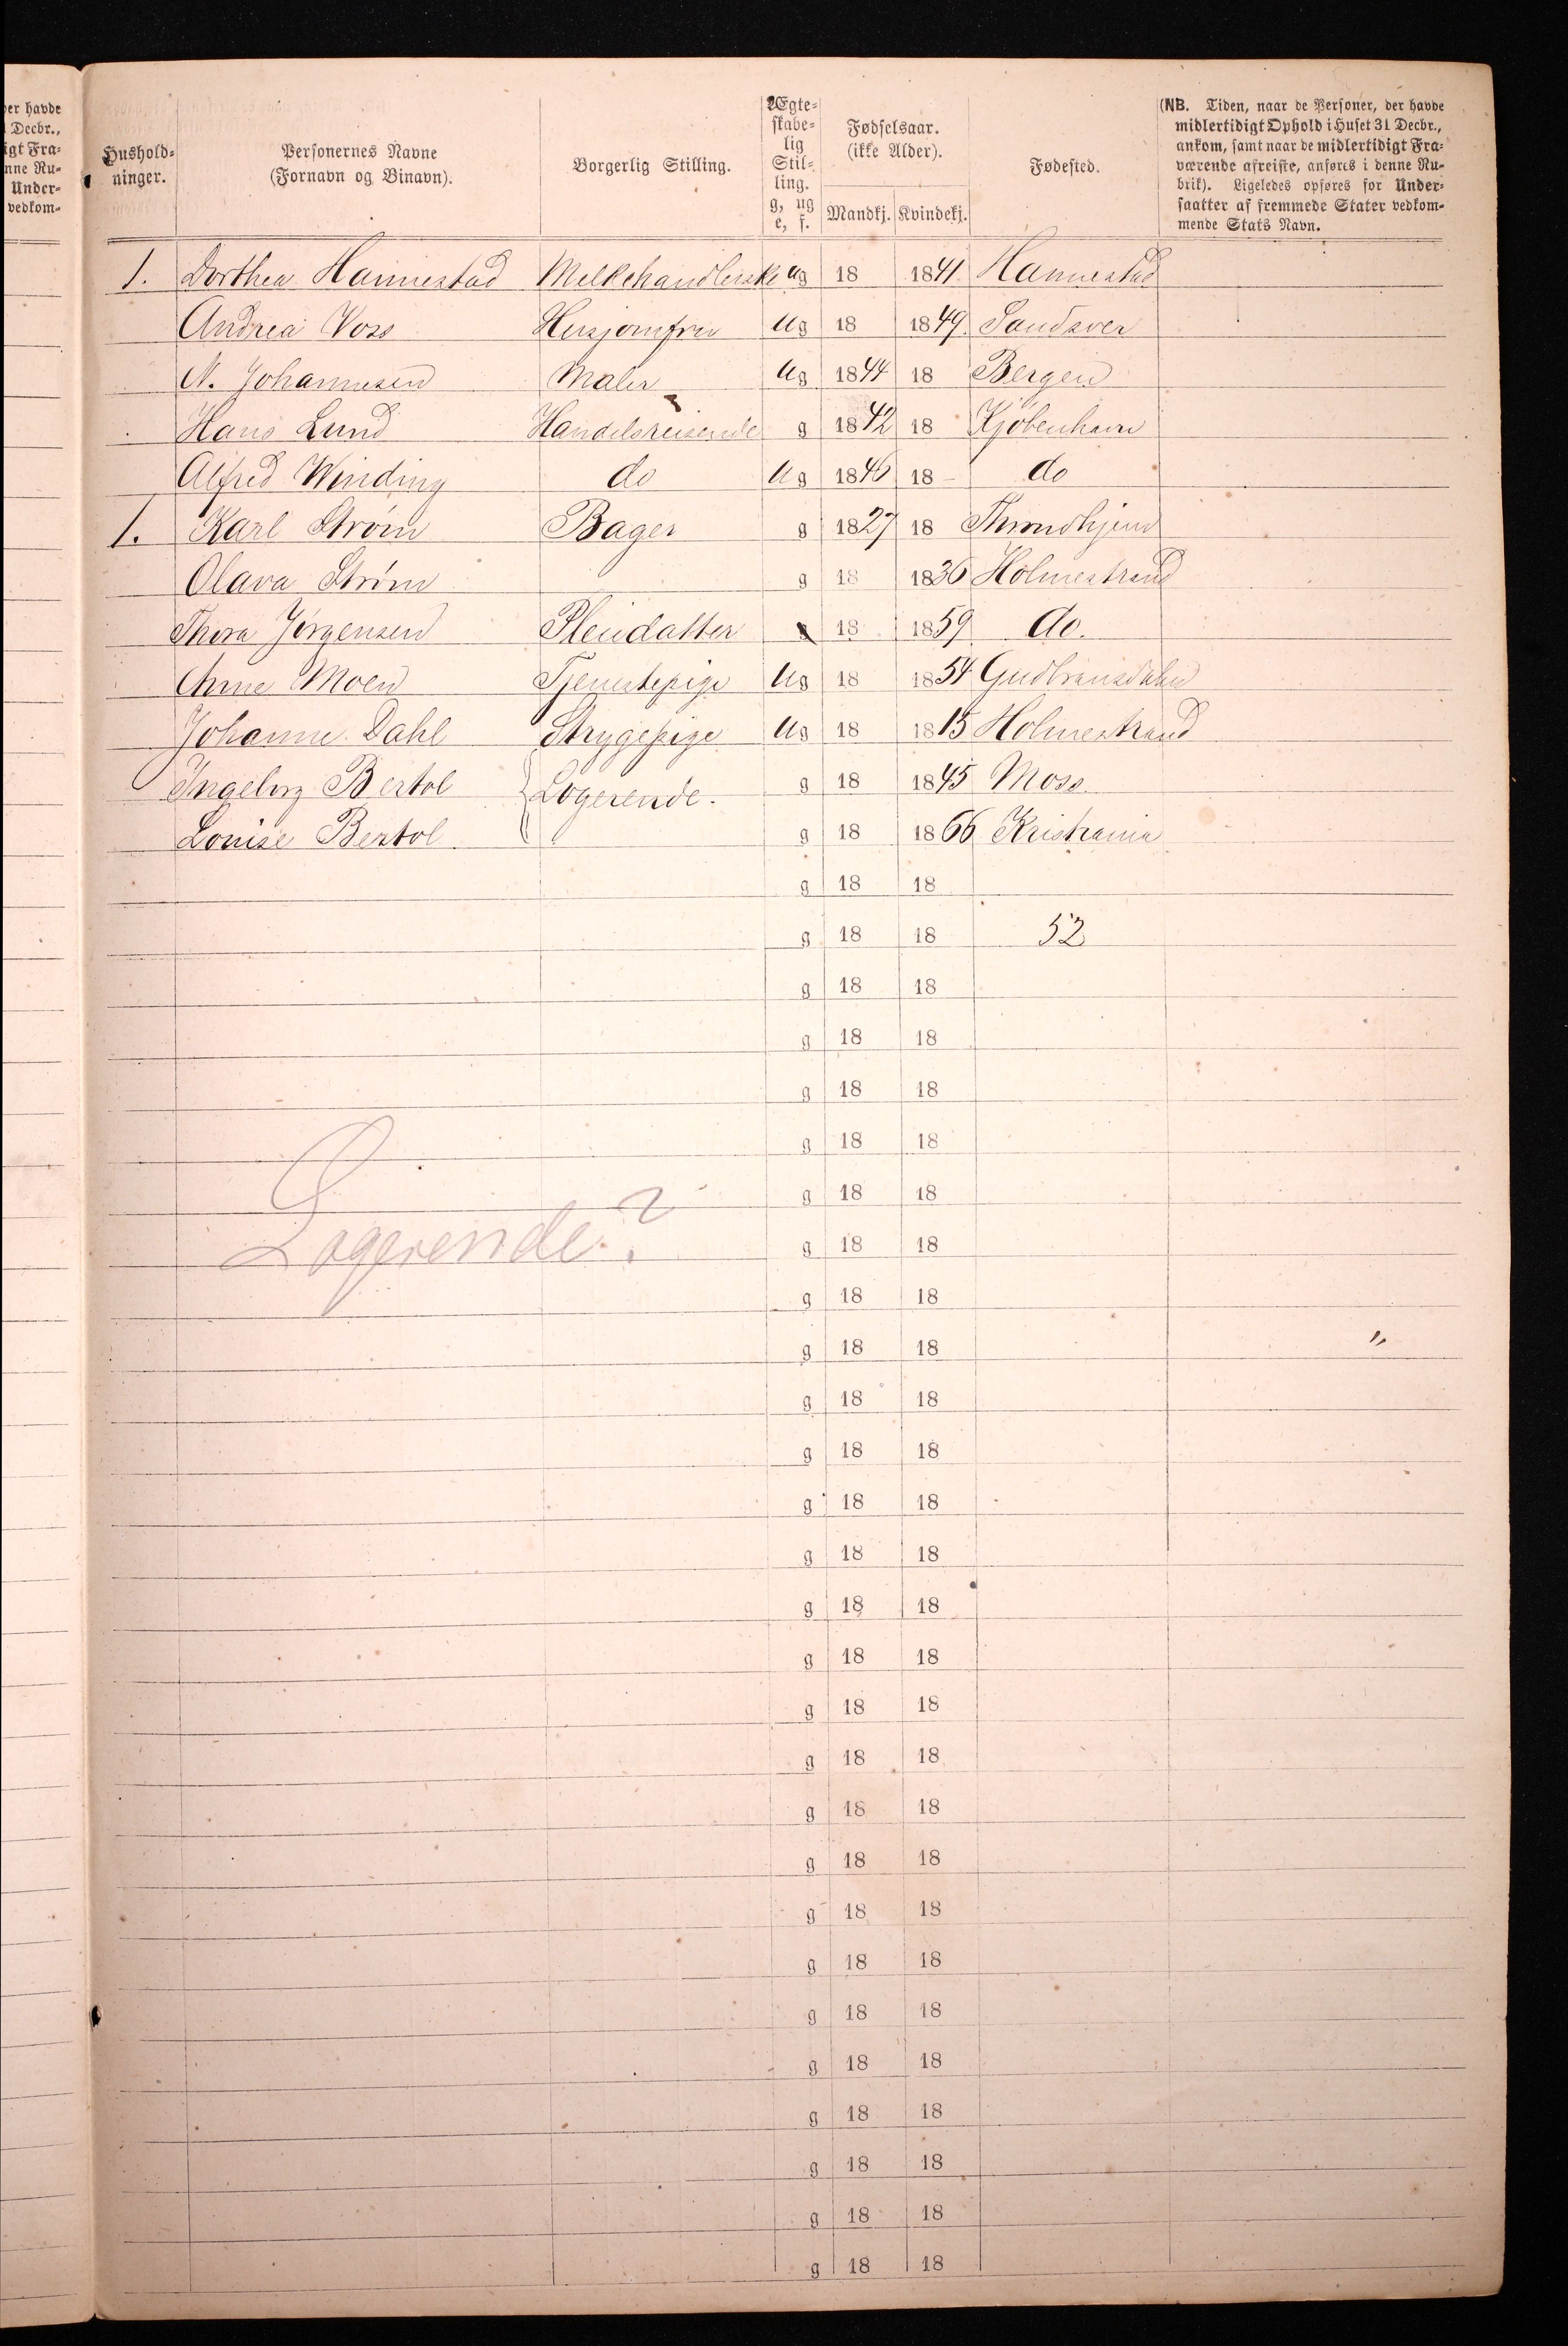 er havde
Decbr.,
igt Fra-
nne Ru-
Under-
vedkom-
Hushold-
ninger.
Personernes Navne
(Fornavn og Binavn).
Borgerlig Stilling.
Ægte-
skabe-
lig
Stil-
ling.
g, ug
e, f.
Fødselsaar.
(ikke Alder).
Mandkj. Kvindekj.
Fødested.
(NB. Tiden, naar de Personer, der havde
midlertidigt Ophold i Huset 31 Decbr.,
ankom, samt naar de midlertidigt Fra-
værende afreiste, anføres i denne Ru-
brik). Ligeledes opføres for Under-
saatter af fremmede Stater vedkom-
mende Stats Navn.
1. Dorthea Hannestad Melkehandlerske ug 18 1841 Hannestad
Andrea Voss Husjomfru ug 18 1849 Sandsver
N. Johannesen Maler ug 1844 18 Bergen
Hans Lund Handelsreisende g 1842 18 Kjøbenhavn
Alfred Winding do ug 1846 18 do
1. Karl Strøm Bager g 1827 18 Throndhjem
Olava Strøm g 18 1836 Holmestrand
Thora Jørgensen Pleiedatter 18 1859 do.
Anne Moen Tjenestepige ug 18 1854 Gudbransdalen
Johanne Dahl Strygepige ug 18 1815 Holmestrand
Ingeborg Bertol Logerende. g 18 1845 Moss
Louise Bertol g 18 1866 Kristiania
g 18 18
g 18 18 52
g 18 18
g 18 18
g 18 18
g 18 18
g 18 18
Logerende? g 18 18
g 18 18
g 18 18 "
g 18 18
g 18 18
g 18 18
g 18 18
g 18 18
g 18 18
g 18 18
g 18 18
g 18 18
g 18 18
g 18 18
g 18 18
g 18 18
g 18 18
g 18 18
g 18 18
g 18 18
g 18 18